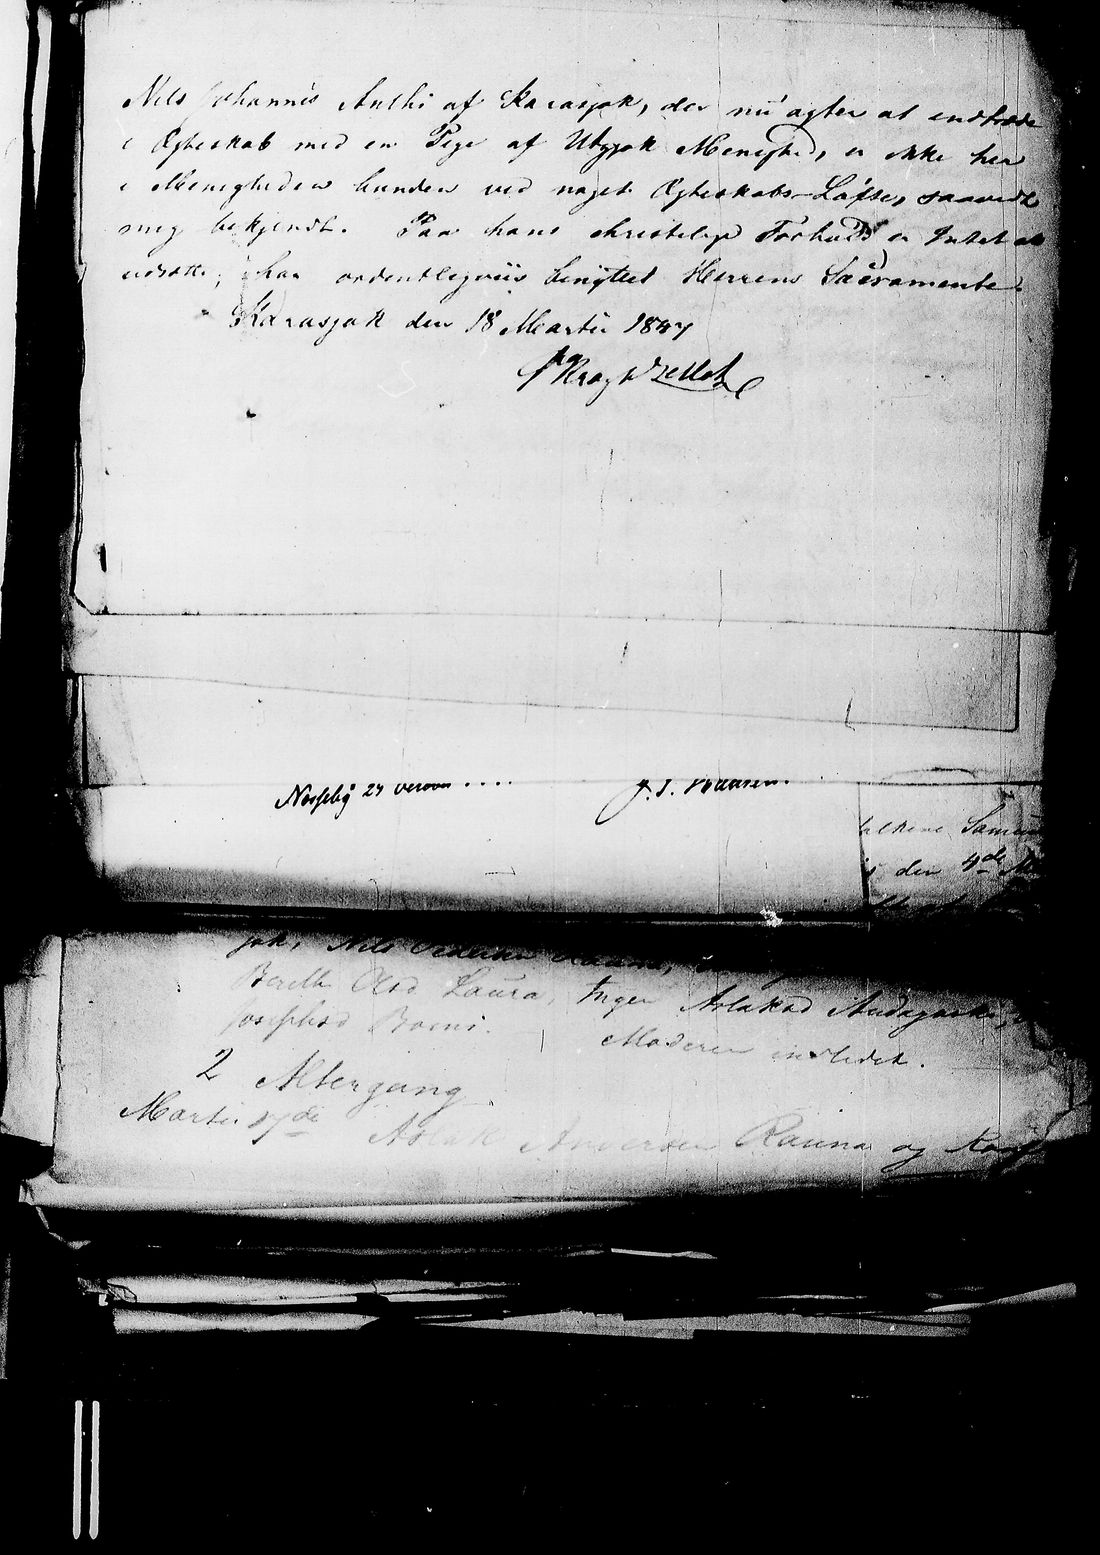 Nils Johannes Anthi af Karasjok, der nu agter at indtræde
i Ægteskab med en Pige af Utsjok Menighed, er ikke her
i Menigheden bunden ved noget Ægteskabs-Løfte, saavidt
mig bekjendt. Paa hans christelige Forhold er Intet at
udsætte; har ordentligviis benyttet Herrens Sacramente.
Karasjok den 18 Martii 1847
Nesseby 24
J. J.
den 4de
jok, Nils
Berith Olsd Laura, Inger Aslaksd
Josephsd Moderen indledet.
2 Altergang
Martii 17de Aslak Andersen Rauna og